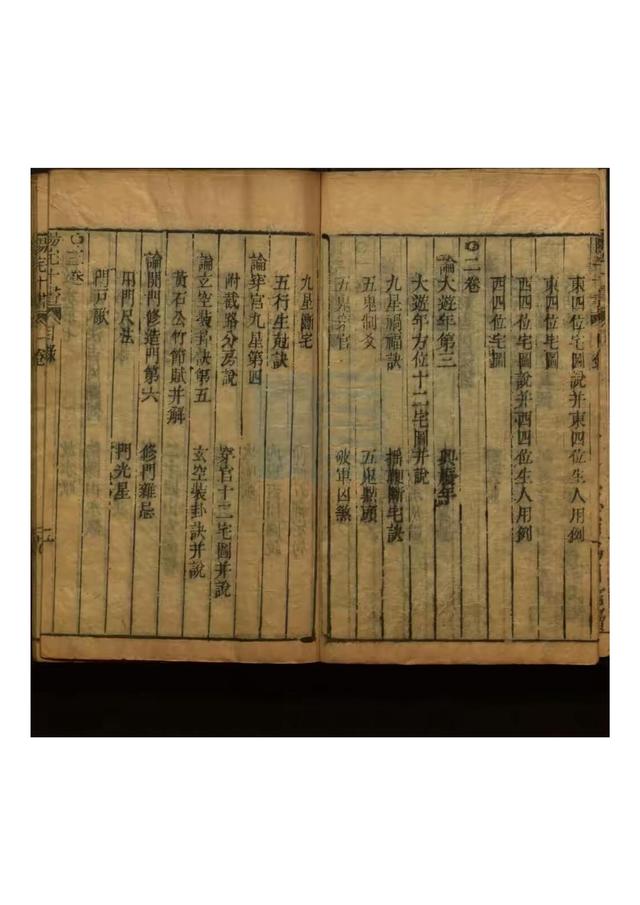 東四位宅圖說并東四位生人用例
東四位宅圖
西四位宅圖說并西四位生人用例
西四位宅圖
○二卷
論大遊年第三
大遊年方位十二宅圖并說
九星禍福訣 搖鞭斷宅訣
五鬼制爻 五鬼
五鬼穿宮 破軍凶煞
九星斷宅
五行生尅訣
論穿宮九星第四 穿宮十二宅圖并說
附截路分房說
論立空裝卦訣第五 玄空裝卦訣并說
黃石公竹節賦并解
論開門修造門第六 修門雜忌
用門尺法 門光星
門戶歌
○三卷
陽宅十書 目錄 卷 二